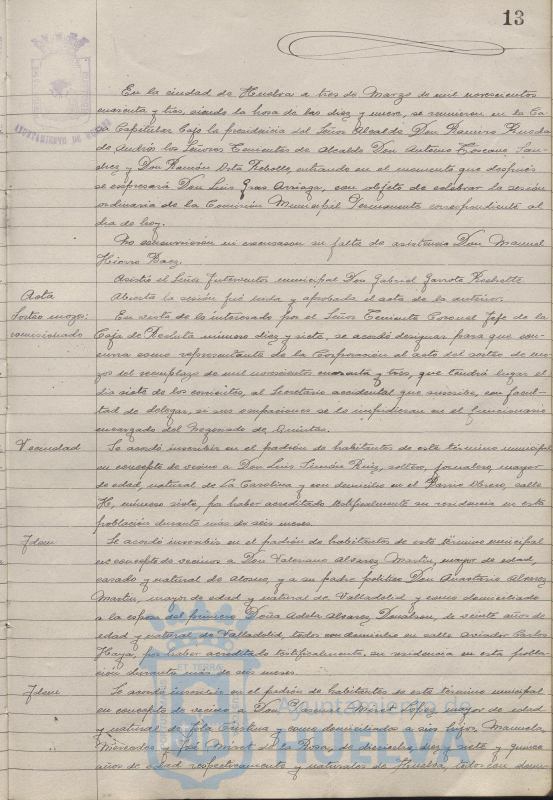 13
En la ciudad de Huelva a tres de Marzo de mil novecientos
cuarenta y tres, siendo la hora de las diez y nueve, se reunieron en la Ca-
sa Capitular bajo la presidencia del Señor Alcalde Don Ramiro Pineda
de Andrés los Señores Tenientes de Alcalde Don Antonio Toscano San-
chez y Don Ramón Rebollo, entrando en el momento que después
se expresará Don Luis Arriaga, con objeto de celebrar la sesión
ordinaria de la Comisión Municipal Permanente correspondiente al
dia de hoy.
No concurrieron ni excusaron su falta de asistencia Don Manuel
Hierro Baez.
Asistió el Señor Interventor municipal Don Gabriel Garrote
Acta
Abierta la sesión fué leida y aprobada el acta de la anterior.
Sorteo mozos:
comisionado
En vista de lo interesado por el Señor Teniente Coronel Jefe de la
Caja de Recluta número diez y siete, se acordó designar para que con-
curra como representante de la Corporación al acto del sorteo de mo-
zos del reemplazo de mil novecientos cuarenta y tres, que tendrá lugar el
dia siete de los corrientes, al Secretario accidental que suscribe, con facul-
tad de delegar, si sus ocupaciones se lo impidieran en el funcionario
encargado del Negociado de Quintas.
Vecindad
Se acordó inscribir en el padrón de habitantes de este término municipal
en concepto de vecino a Don Luis Simón Ruiz, soltero, jornalero, mayor
de edad, natural de La Carolina y con domicilio en el Barrio Obrero, calle
H, número siete, por haber acreditado testificalmente su residencia en esta
población durante más de seis meses.
Idem
Se acordó inscribir en el padrón de habitantes de este término municipal
en concepto de vecinos a Don Valeriano Alvarez Martin, mayor de edad,
casado y natural de Alosno, y a su padre politico Don Anastasio Alvarez
Martin, mayor de edad y natural de Valladolid y como domiciliado
a la esposa del primero Doña Adela Alvarez de veinte años de
edad y natural de Valladolid, todos con domicilio en calle Aviador Carlos
Haya, por haber acreditado testificalmente su residencia en esta pobla-
ción durante más de seis meses.
Idem
Se acordó inscribir en el padrón de habitantes de este término municipal
en concepto de vecino a Don Pascual Miret López, mayor de edad
y natural de Isla Cristina y como domiciliados a sus hijos, Manuela,
Mercedes y José Miret de la Rosa, de dieciocho, diez y siete y quince
años de edad respectivamente y naturales de Huelva, todos con domi-